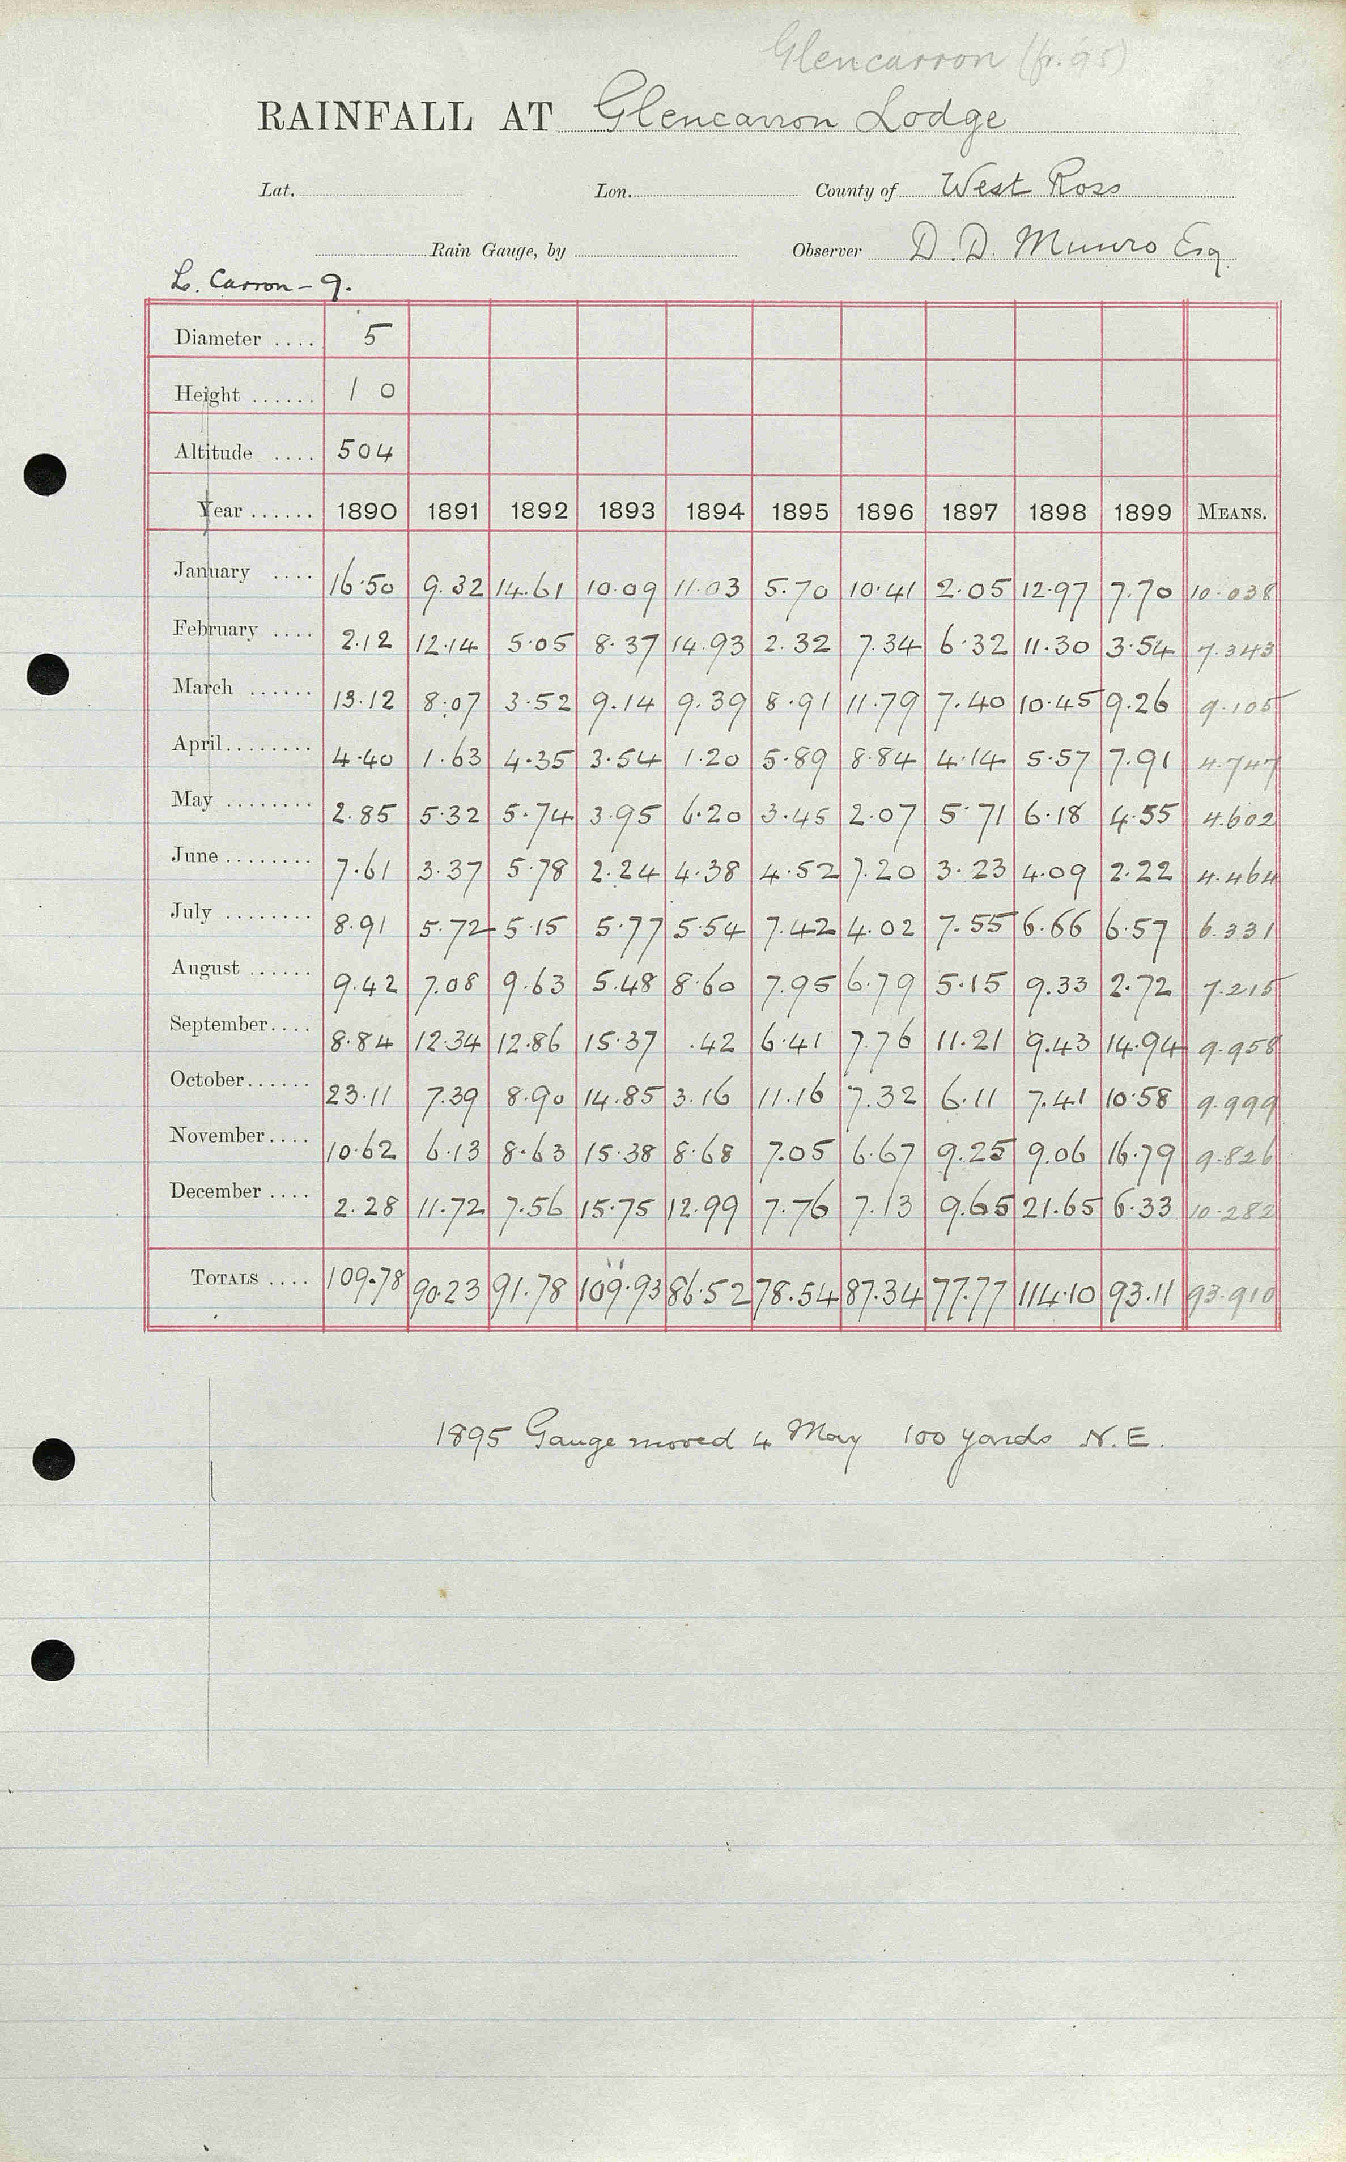 Glencarron (fr. 95)
RAINFALL AT Glencarron Lodge
Lat. Lon. County of West Ross
Rain Gauge, by Observer D. D. Munro Esq.
L. Carron - 9.
Diameter .... 5
Height ...... 1 0
Altitude .... 504
Year ...... 1890 1891 1892 1893 1894 1895 1896 1897 1898 1899 MEANS.
January .... 16.50 9.32 14.61 10.09 11.03 5.70 10.41 2.05 12.97 7.70 10.038
February .... 2.12 12.14 5.05 8.37 14.93 2.32 7.34 6.32 11.30 3.54 7.343
March ...... 13.12 8.07 3.52 9.14 9.39 8.91 11.79 7.40 10.45 9.26 9.105
April........ 4.40 1.63 4.35 3.54 1.20 5.89 8.84 4.14 5.57 7.91 4.747
May ........ 2.85 5.32 5.74 3.95 6.20 3.45 2.07 5.71 6.18 4.55 4.602
June ........ 7.61 3.37 5.78 2.24 4.38 4.52 7.20 3.23 4.09 2.22 4.464
July ........ 8.91 5.72 5.15 5.77 5.54 7.42 4.02 7.55 6.66 6.57 6.331
August ...... 9.42 7.08 9.63 5.48 8.60 7.95 6.79 5.15 9.33 2.72 7.215
September.... 8.84 12.34 12.86 15.37 .42 6.41 7.76 11.21 9.43 14.94 9.958
October...... 23.11 7.39 8.90 14.85 3.16 11.16 7.32 6.11 7.41 10.58 9.999
November.... 10.62 6.13 8.63 15.38 8.68 7.05 6.67 9.25 9.06 16.79 9.826
December .... 2.28 11.72 7.56 15.75 12.99 7.76 7.13 9.65 21.65 6.33 10.282
TOTALS .... 109.78 90.23 91.78 109.93 86.52 78.54 87.34 77.77 114.10 93.11 93.910
1895 Gauge moved 4 May 100 yards N.E.